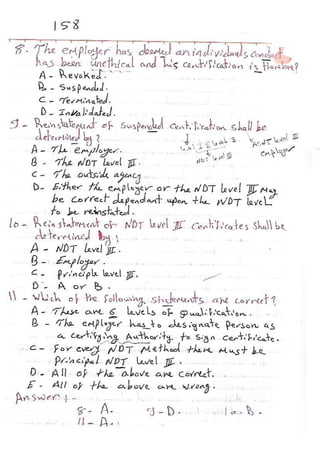 158
8- The employer has deemed an individuals conduct
has been unethical and his certification is therefore?
A - Revoked.
B - Suspended.
C - Terminated.
D - Invalidated.
9- Reinstatement of suspended certification shall be
determined by?
A - The employer.
employer
B - The NDT Level III.
C - The outside agency.
D - Either the employer or the NDT level III may
be correct dependant upon the NDT level
to be reinstated.
10- Reinstatement of NDT level III certificates shall be
determined by:
A - NDT level III.
B - Employer.
C - principle level III.
D - A or B.
11 - Which of the following statements are correct?
A - These are 6 levels of qualification.
B - The employer has to designate person as
a certifying Authority to sign certificate.
C - For every NDT Method there must be
Principal NDT Level III.
D - All of the above are correct.
E - All of the above are wrong.
Answer :-
8- A. 9-D. 10-B.
11-A.